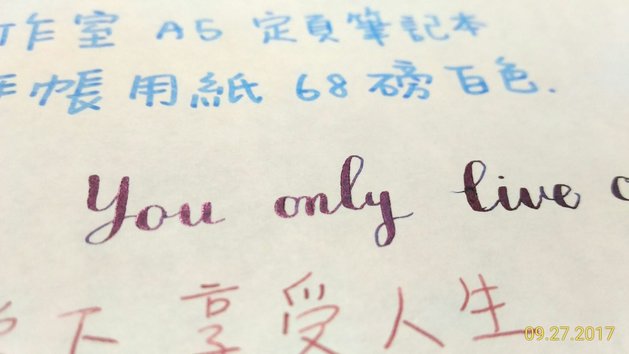 作室 A5 定頁筆記本
手帳用紙 68磅百色.
You only live
下 享受人生
09.27.2017